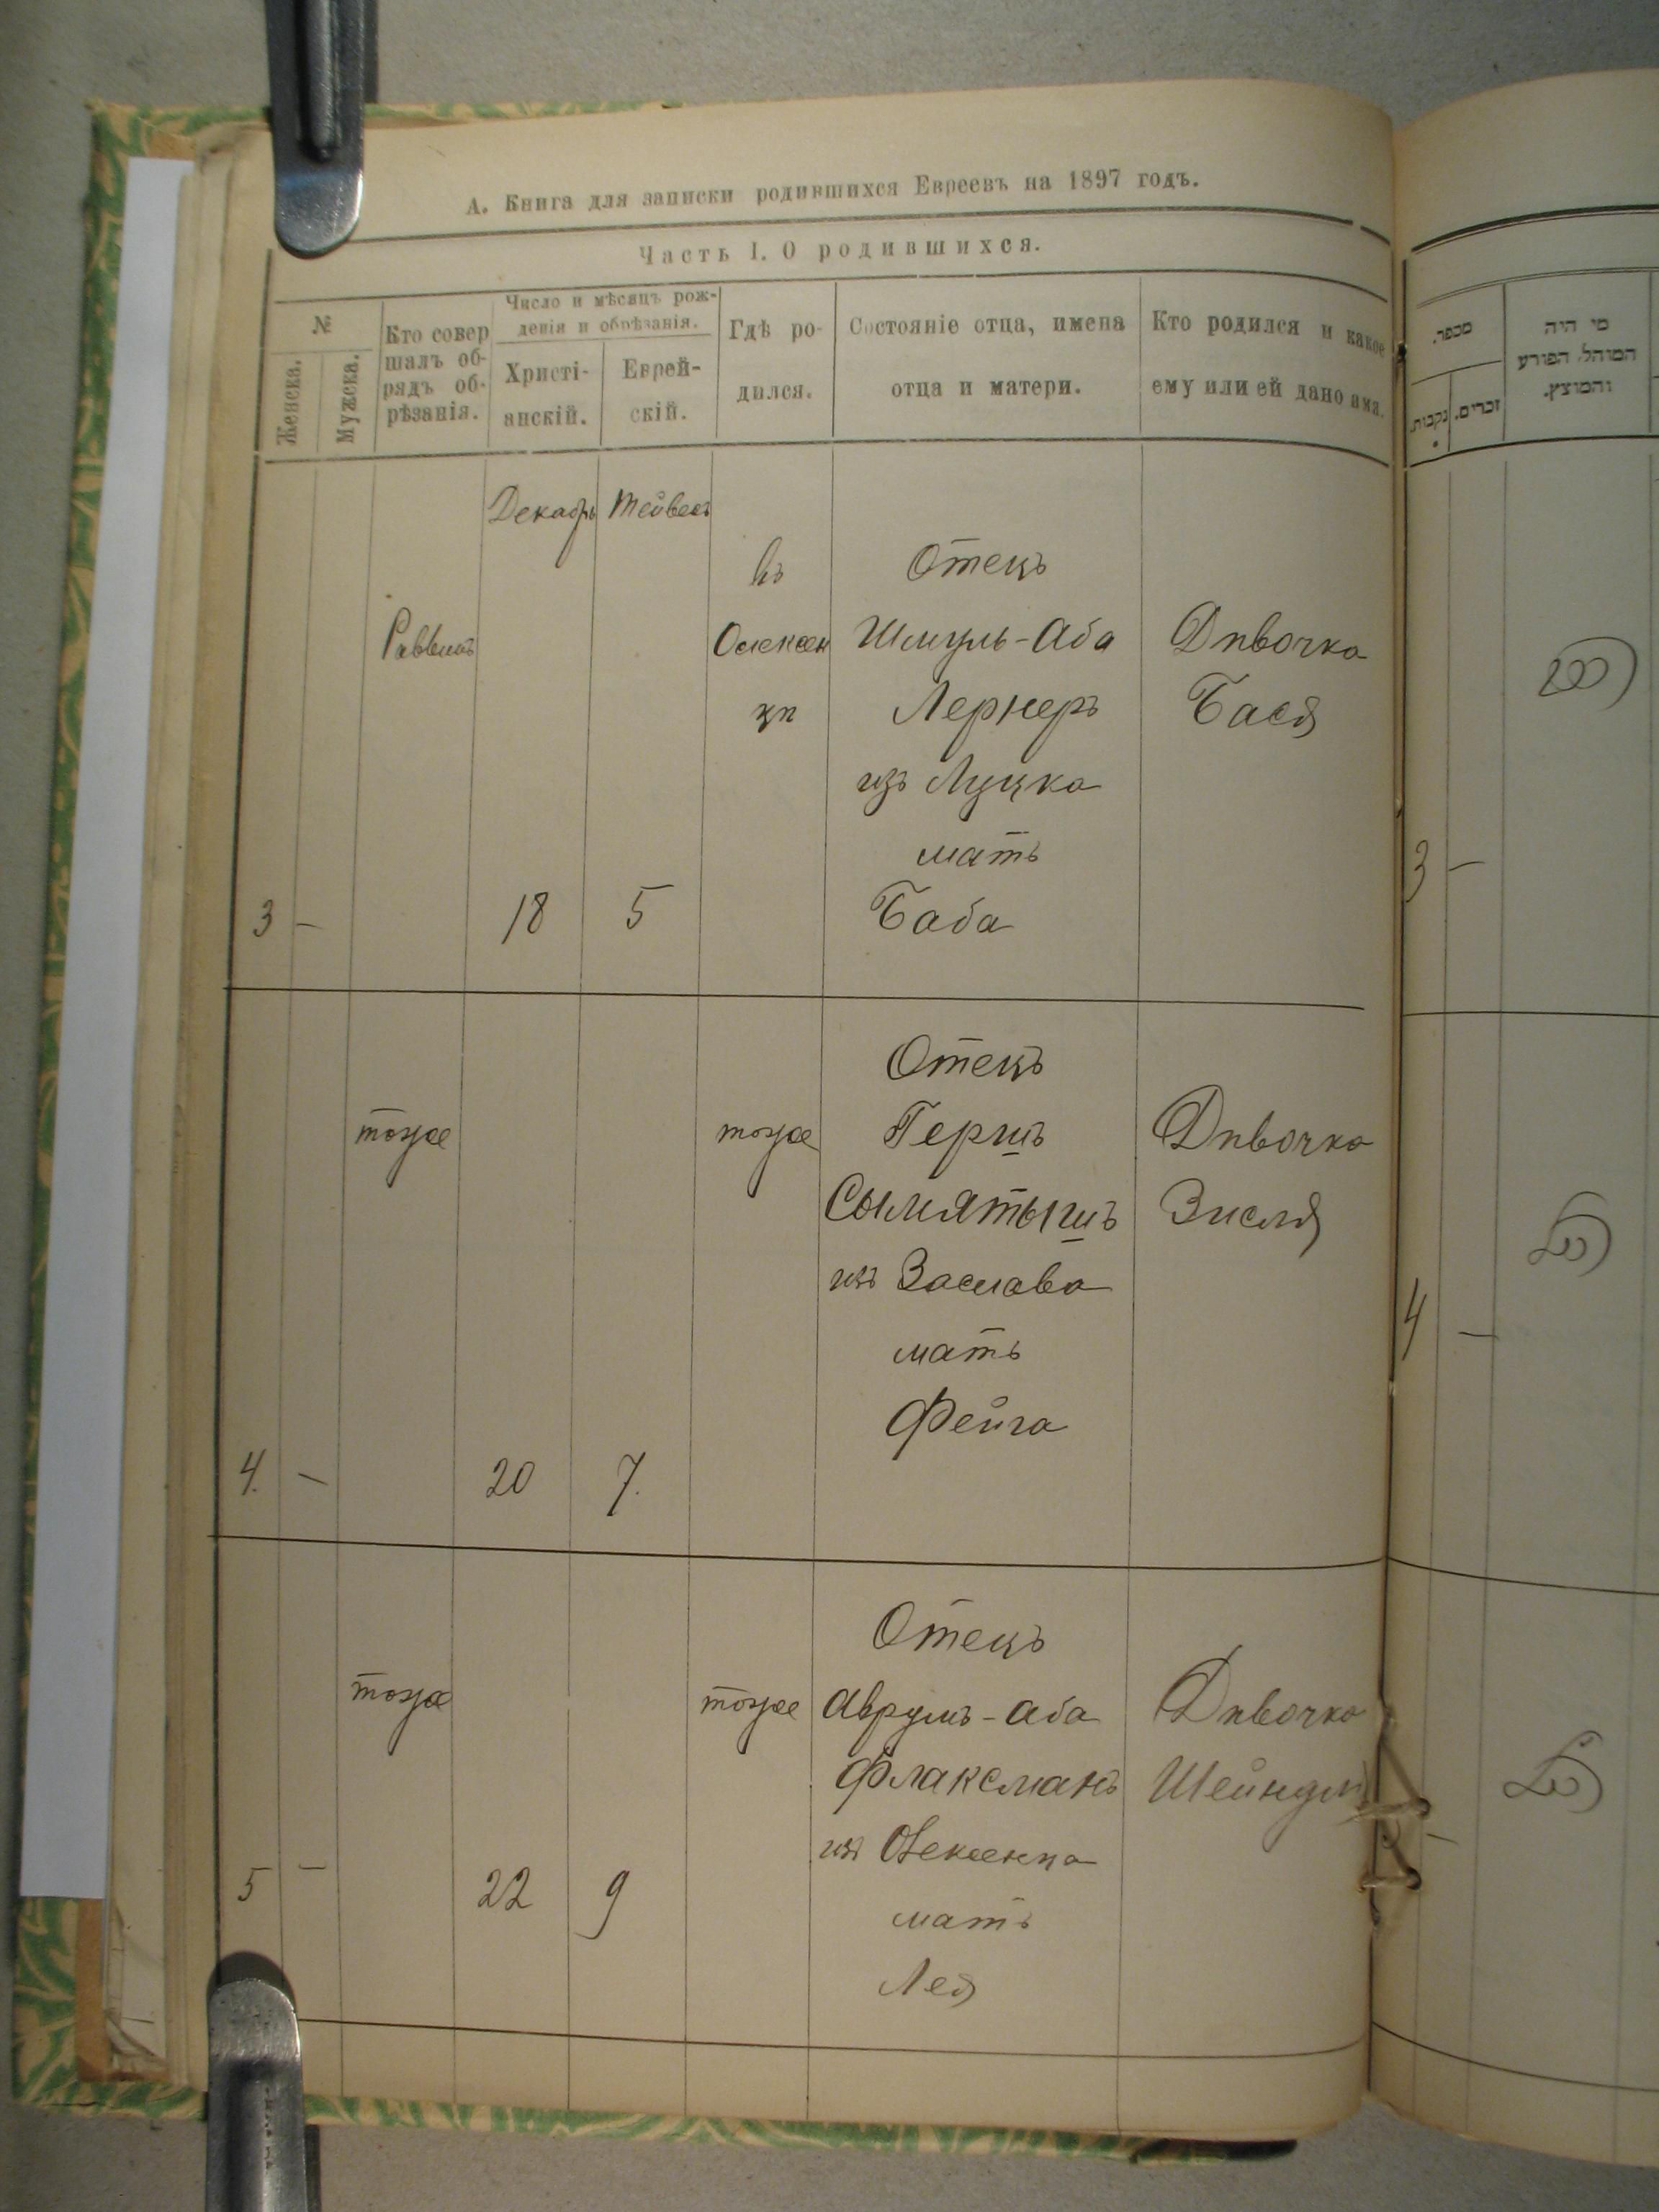 А. Книга для записки родившихся Евреевъ на 1897 годъ.
Часть I. О родившихся.
№
Женска.
Мужска.
Кто совер
шалъ об-
рядъ об-
рѣзанія.
Число и мѣсяцъ рож-
денія и обрѣзанія.
Христі-
анскій.
Еврей-
скій.
Гдѣ ро-
дился.
Состояніе отца, имена
отца и матери.
Кто родился и какое
ему или ей дано имя.
Декабрь
Тейвесъ
3
—
Раввинъ
18
5
въ
Олексин
цѣ
Отецъ
Шмуль-Аба
Лернеръ
изъ Луцка
мать
Баба
Дѣвочка
Бася
4.
—
тоже
20
7.
тоже
Отецъ
Гершъ
Сымятышъ
изъ Заслава
мать
Фейга
Дѣвочка
Зисля
5
—
тоже
22
9
тоже
Отецъ
Аврумъ-Аба
Флаксманъ
изъ
мать
Лея
Дѣвочка
Шейндл
מספר.
נקבות.
זכרים.
מי היה
המוהל, הפורע
והמוצץ.
3 —
4 —